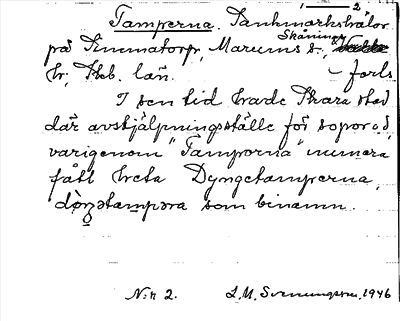 1 — 2
Tamperna. Sankmarkshålor
på Simmatorp, Marums s., Skånings
hr, Skb. län. – forts
I sen tid hade Skara stad
där avstjälpningsställe för sopor o d,
varigenom "Tamperna" numera
fått heta Dyngetamperna,
som binamn.
N:r 2. L. M. Svenungsson, 1946